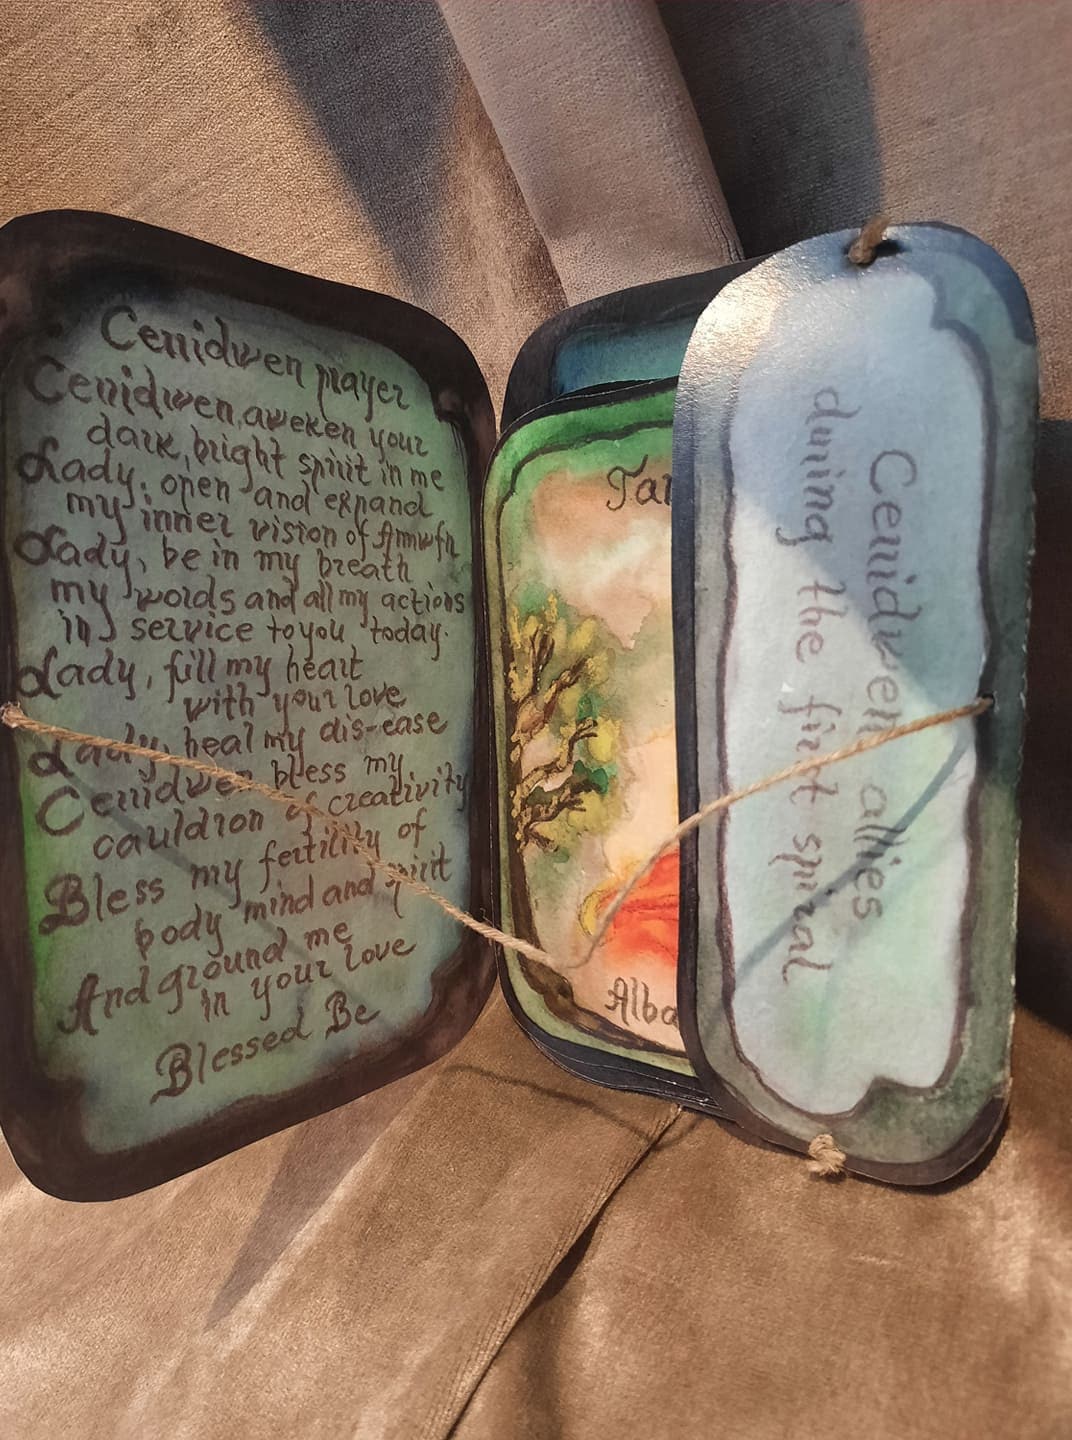 Cerridwen prayer
Cerridwen, aweken your
dark, bright spirit in me
Lady, open and expand
my inner vision of Annwfn
Lady, be in my breath
my words and all my actions
in service to you today.
Lady, fill my heart
with your love
Lady, heal my dis-ease
Cerridwen bless my
cauldron of creativity
Bless my fertility of
body mind and spirit
And ground me
in your love
Blessed Be
Alba
Cerridwen allies
during the first spiral